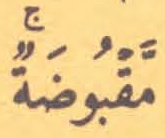 مَّقْبُوضَةٌ ۚ